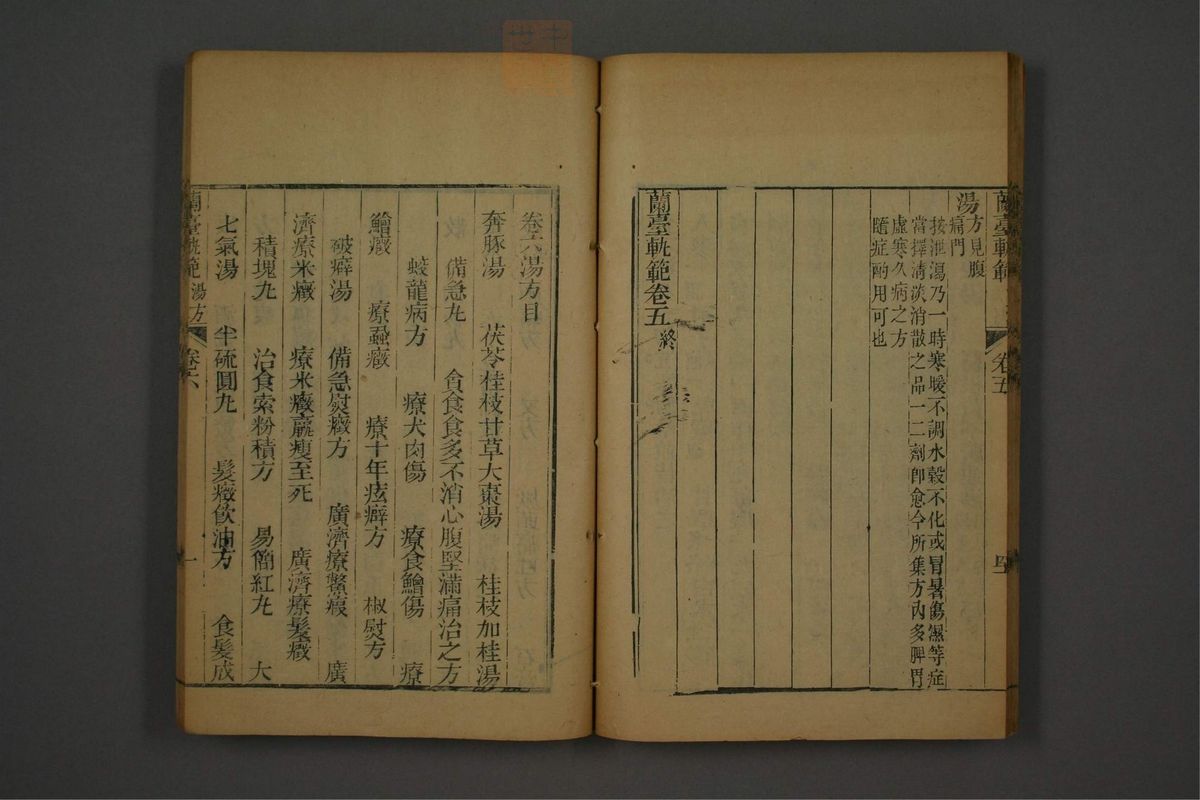 蘭臺軌範
卷五
湯方見腹
痛門
按泄瀉乃一時寒暖不調水穀不化或冒暑傷濕等症
當擇清淡消散之品一二劑即愈今所集方内多脾胃
虛寒久病之方
隨症酌用可也
蘭臺軌範卷五終
卷六湯方目
奔豚湯　茯苓桂枝甘草大棗湯　桂枝加桂湯
備急丸　貪食食多不消心腹堅滿痛治之方
蛟龍病方　療犬肉傷　療食鱠傷　療
鱠癥　療蝨癥　療十年痃癖方　椒熨方
破癖湯　備急熨癥方　廣濟療鱉瘕　廣
濟療米癥　療米癥羸瘦至死　廣濟療髮癥
積塊丸　治食索粉積方　易簡紅丸　大
七氣湯　半硫圓丸　髮癥飲油方　食髮成
蘭臺軌範　湯方　卷六　一